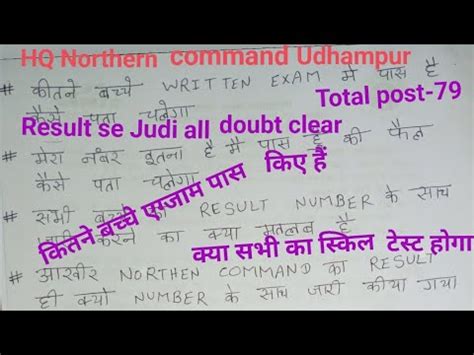 HQ Northern command Udhampur
# कीतने बच्चे WRITTEN EXAM मे पास है
कैसे पता चलेगा
Total post-79
Result se Judi all doubt clear
# मेरा नंबर इतना है मै पास है की फैल
कैसे पता चलेगा
कितने बच्चे एग्जाम पास किए हैं
# सभी RESULT NUMBER के साथ
करने का क्या मतलब है
क्या सभी का स्किल टेस्ट होगा
# आखीर NORTHEN COMMAND का RESULT
ही क्यो NUMBER के साथ जारी कीया गया